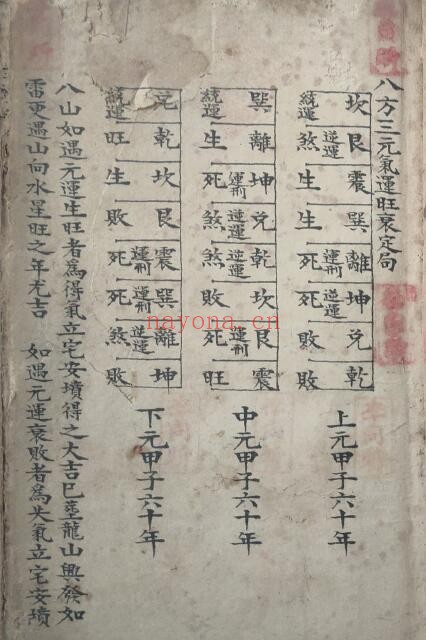 八方三元氣運旺衰定局
坎 統運
艮 逆運 煞
震 生
巽 生
離 運刑 死
坤 逆運 死
兌 敗
乾 敗
上元甲子六十年
巽 統運
離 生
坤 運刑 死
兌 逆運 煞
乾 逆運 煞
坎 敗
艮 運刑 死
震 旺
中元甲子六十年
兌 統運
乾 旺
坎 生
艮 敗
震 運刑 死
巽 運刑 死
離 逆運 煞
坤 敗
下元甲子六十年
八山如遇元運生旺者為得氣立宅安墳得之大吉已塟龍山興發如
雷更遇山向水星旺之年尤吉 如遇元運衰敗者為失氣立宅安墳
nayona.cn